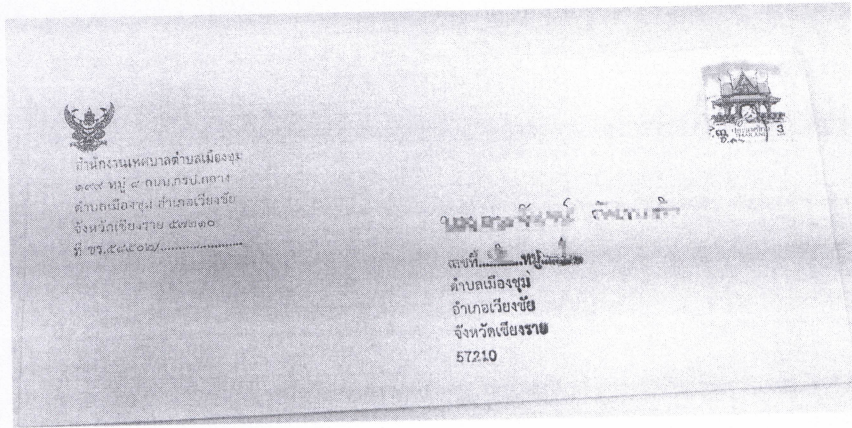 สำนักงานเทศบาลตำบลเมืองชุม
๑๙๙ หมู่ ๘ ถนน.กรป.กลาง
ตำบลเมืองชุม อำเภอเวียงชัย
จังหวัดเชียงราย ๕๗๒๑๐
ที่ ชร.๕๔๕๐๒/......................
3
เลขที่ หมู่
ตำบลเมืองชุม
อำเภอเวียงชัย
จังหวัดเชียงราย
57210